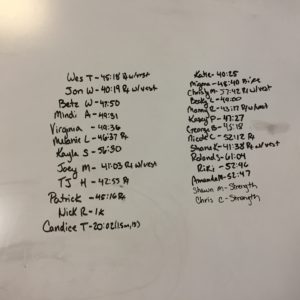 Wes T - 45:18 Rx w/vest
Jon W - 40:19 Rx w/vest
Betz W - 47:50
Mindi A - 49:31
Virginia - 49:36
Melanie L - 46:37 Rx
Kayla S - 56:30
Joey M - 41:03 Rx w/vest
TJ H - 42:55 Rx
Patrick - 45:16 Rx
Nick R - 1k
Candice T - 20:02
Katie - 40:25
48:40
Christy M - 57:42 Rx w/vest
Becky L - 40:00
Manny R - 43:17 Rx w/vest
Kasey P - 47:27
George B - 45:18
Nicole C - 52:12 Rx
Shane K - 41:38 Rx w/vest
Roland S - 61:04
Riki - 52:46
Amanda M - 52:47
Shawn M - Strength
Chris C - Strength